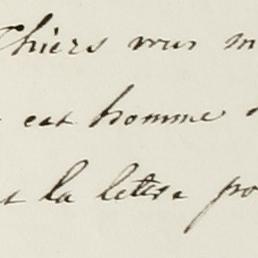 Thiers vous m
est homme
la lettre po